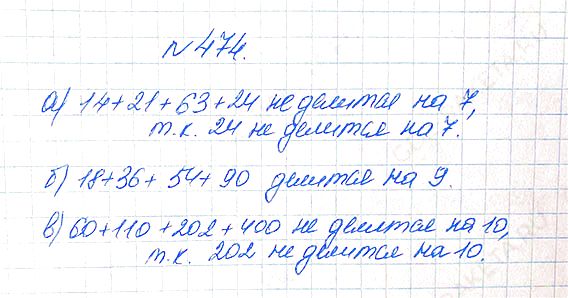 №474.
а) 14+21+63+24 не делится на 7,
т.к. 24 не делится на 7.
б) 18+36+54+90 делится на 9.
в) 60+110+202+400 не делится на 10,
т.к. 202 не делится на 10.